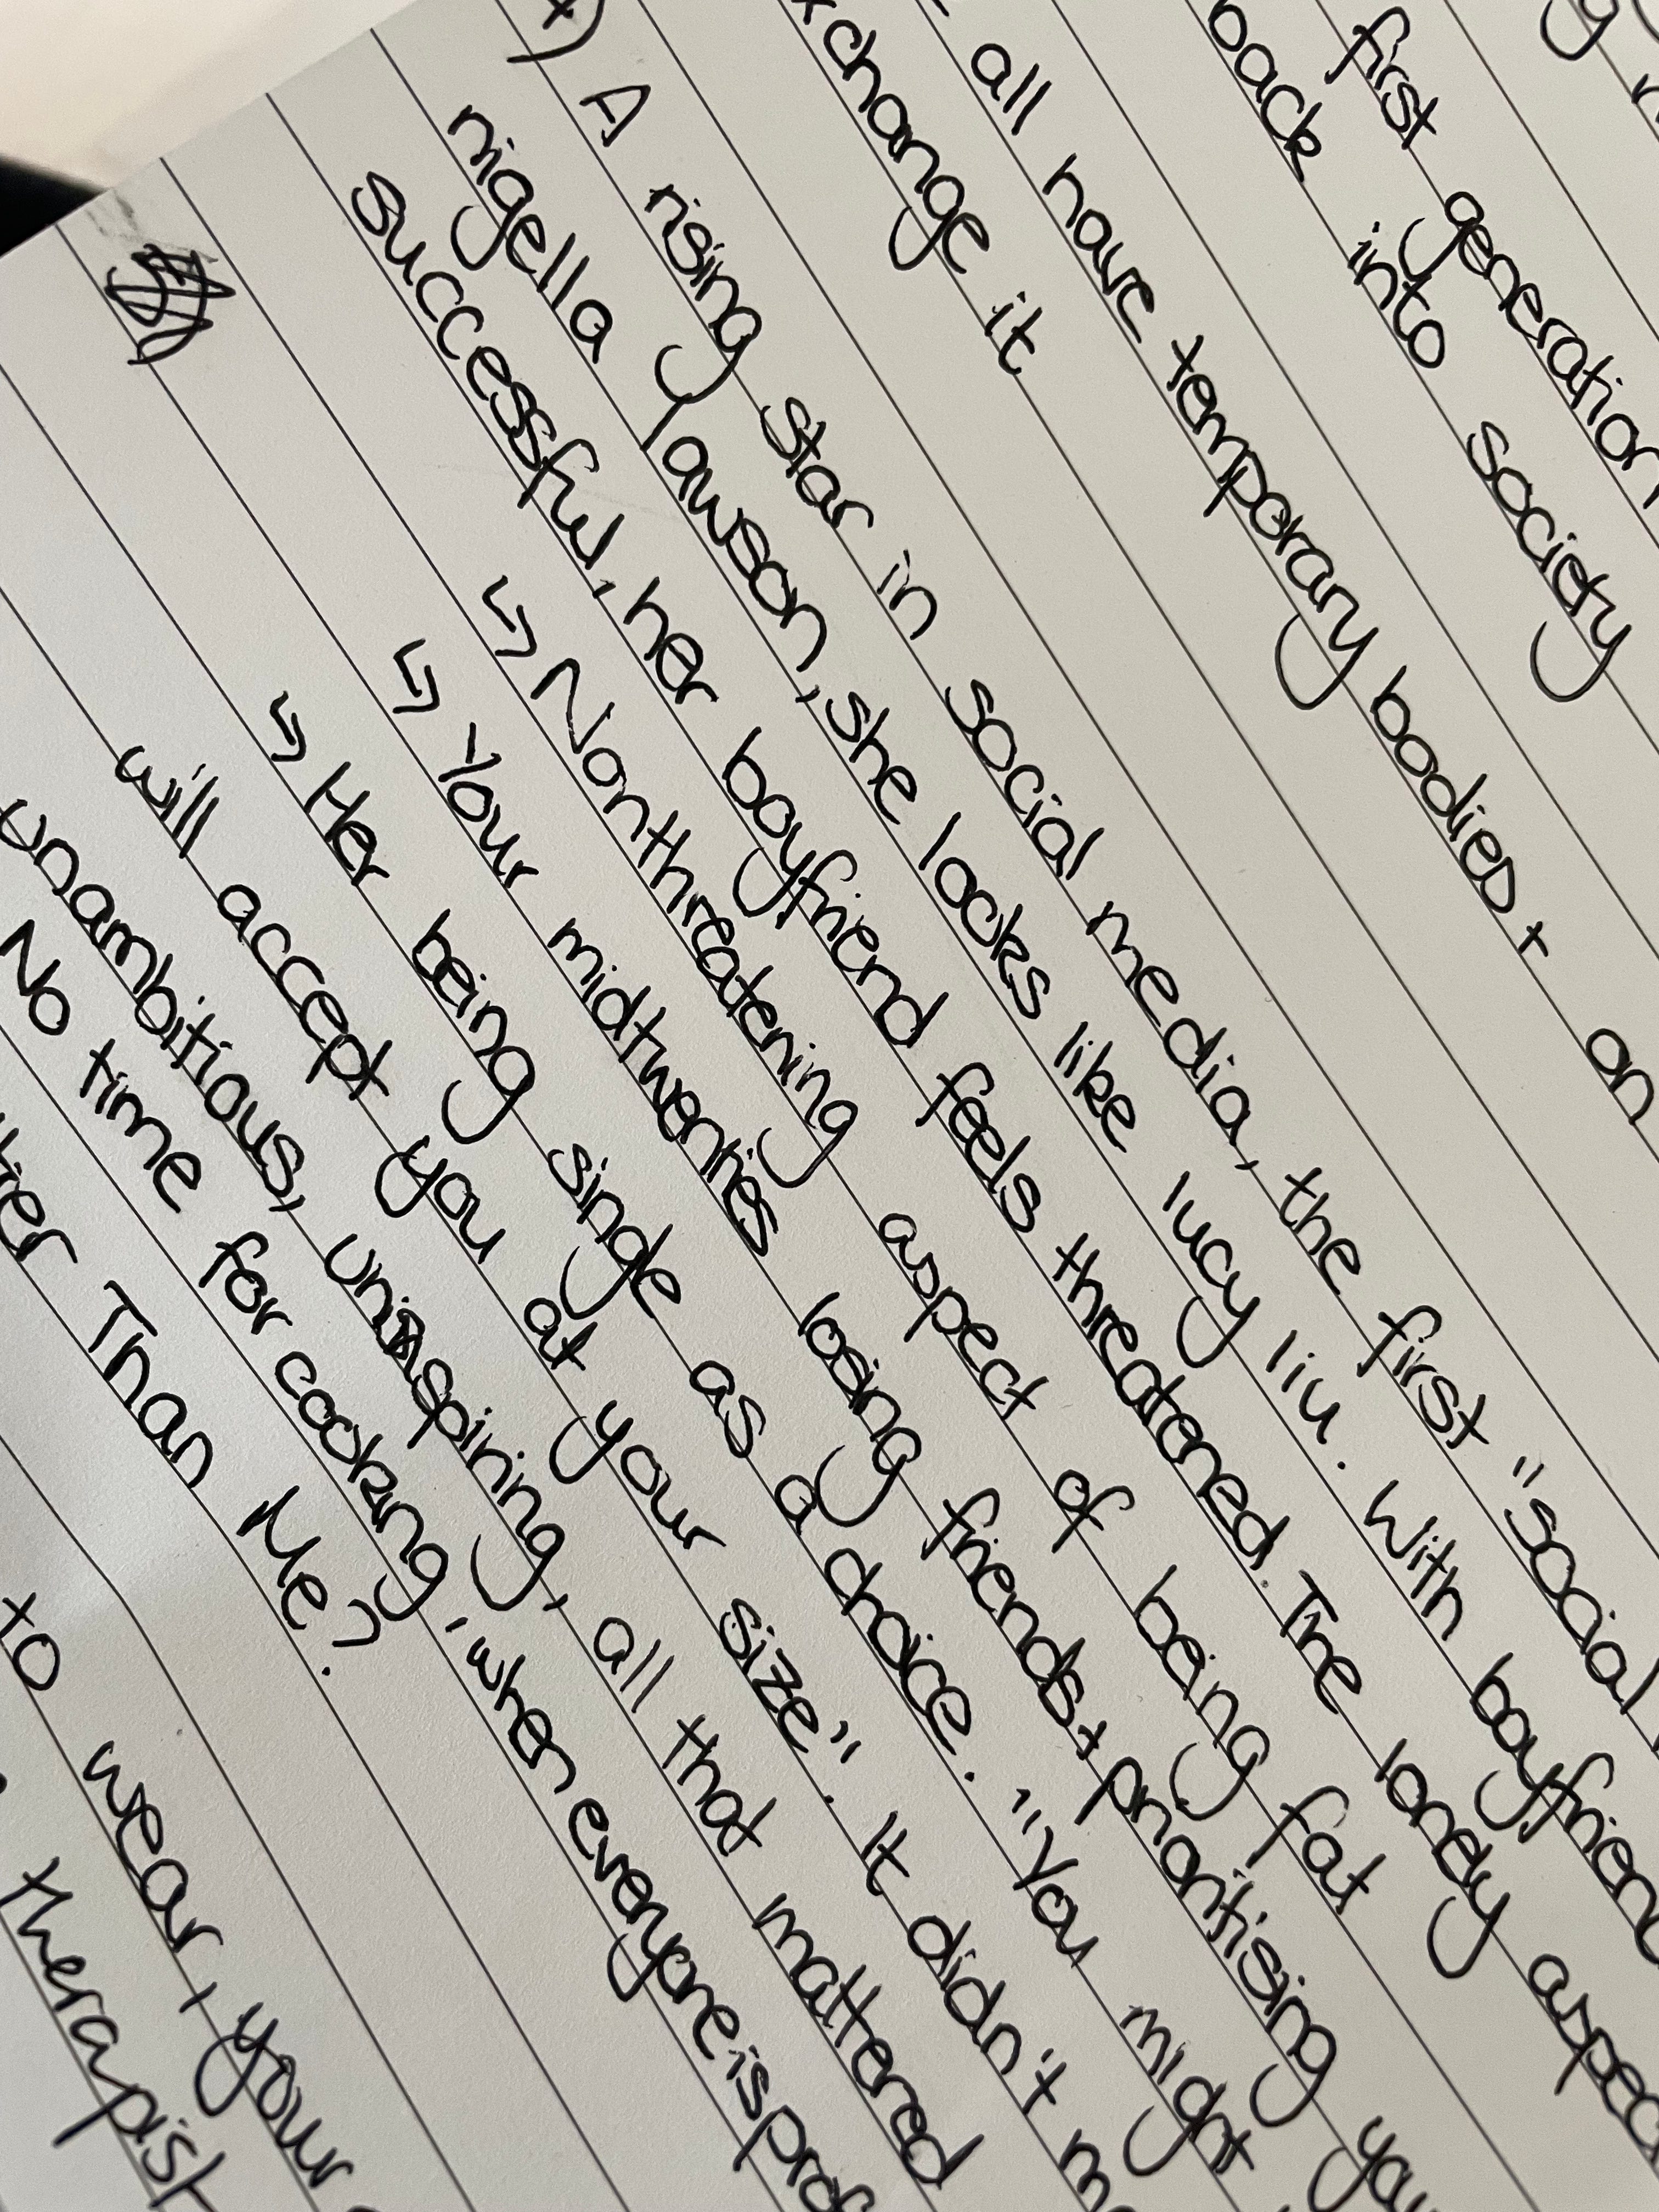 first generation
back into society
all have temporary bodied + on
change it
A rising star in social media, the first "social
nigella lawson, she looks like lucy liu. With boyfriend
successful, her boyfriend feels threatened. The lonely aspec
↳ Nonthreatening aspect of being fat
↳ Your midtwenties losing friends + prioritising you
↳ Her being single as a choice. "You might
will accept you at your size". It didn't m
unambitious, uninspiring, all that mattered
No time for cooking, when everyone is prof
Than Me?
to wear, your
therapist